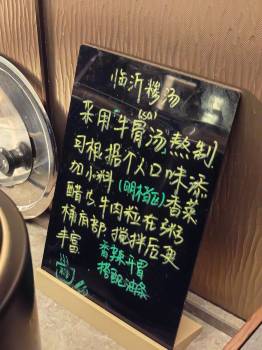 临沂糁汤
(SA)
采用「牛骨汤」熬制
可根据个人口味添
加小料(明格区)香菜
醋.牛肉粒在粥
桶底部,搅拌后更
丰富 香辣开胃
搭配油条